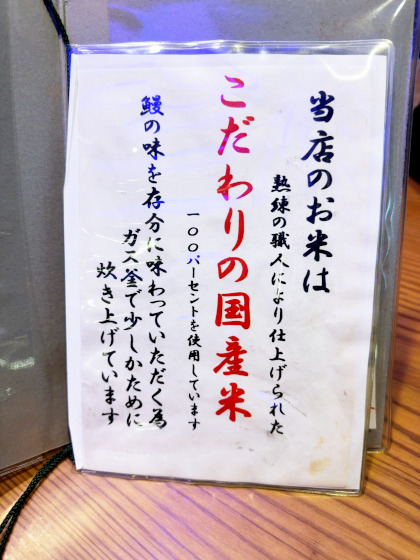 当店のお米は
熟練の職人により仕上げられた
こだわりの国産米
一〇〇パーセントを使用しています
鰻の味を存分に味わっていただく為
ガス釜で少しかために
炊き上げています